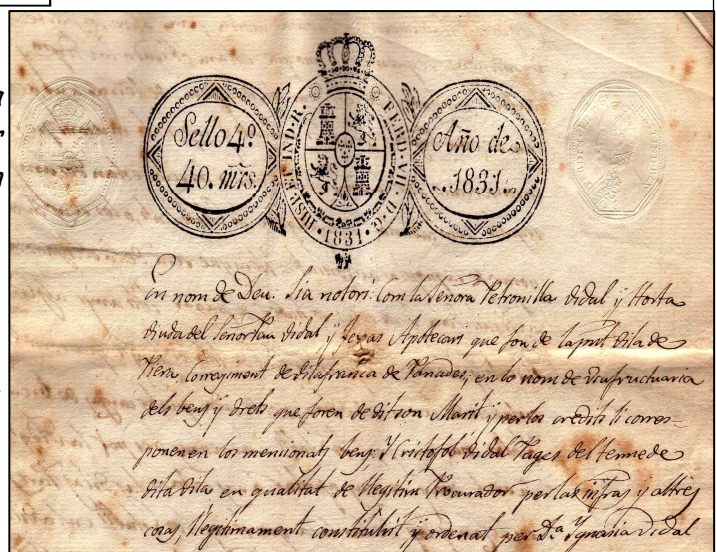 Sello 4º
40. mrs.
HISP. ET IND. R. FERD. VII. D. G. 1831
Año de
1831.
En nom de Deu: Sia notori: Com la Señora Petronilla Vidal y Horta
Viuda del Señor Pau Vidal y Apotecari que fou de la pnt Vila de
Piera, Corregiment de Vilafranca de Panades; en lo nom de Usufructuaria
dels bens y drets que foren de dit son Marit y per los credits li corres-
ponen en los mencionats bens: Y Cristofol Vidal Pages del terme de
dita Vila en qualitat de Llegitim Procurador per las infras y altres
cosas llegitimament constituhit y ordenat per Dª Ignasia Vidal